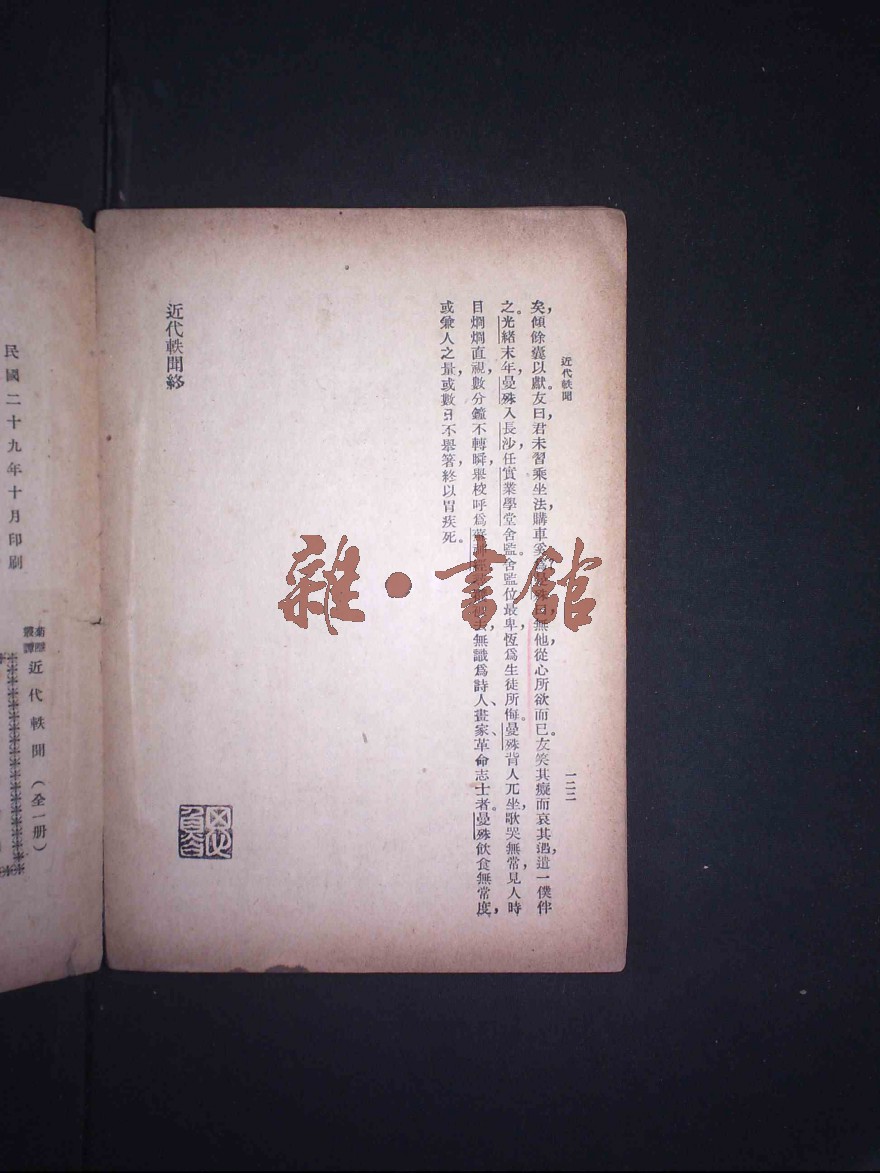 近代軼聞
一二二
矣，傾餘囊以獻。友曰，君未習乘坐法，購車奚爲？曼殊曰，無他，從心所欲而已。友笑其癡而哀其遇，遣一僕伴
之。光緒末年，曼殊入長沙，任實業學堂舍監。舍監位最卑，恆爲生徒所侮。曼殊背人兀坐，歌哭無常，見人時
目烱烱直視，數分鐘不轉瞬，舉校呼爲 無識爲詩人、畫家、革命志士者。曼殊飲食無常度，
或兼人之量，或數日不舉箸，終以胃疾死。
近代軼聞終
雜·書館
新陸
叢譚
近代軼聞（全一册）
民國二十九年十月印刷